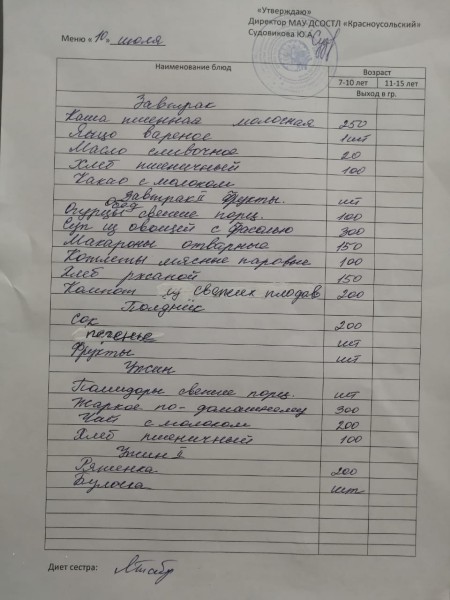 «Утверждаю»
Директор МАУ ДСОСТЛ «Красноусольский»
Судовикова Ю.А.
Меню «10» июля
Наименование блюд Возраст
7-10 лет 11-15 лет
Выход в гр.
Завтрак
Каша пшенная молочная 250
Яйцо вареное 1шт
Масло сливочное 20
Хлеб пшеничный 100
Какао с молоком
Завтрак II Фрукты. шт
Обед
Огурцы свежие порц. 100
Суп из овощей с фасолью 300
Макароны отварные 150
Котлеты мясные паровые 100
Хлеб ржаной 150
Компот из свежих плодов 200
Полдник
Сок 200
печенье шт
Фрукты шт
Ужин
Помидоры свежие порц. шт
Жаркое по-домашнему 300
Чай с молоком 200
Хлеб пшеничный 100
Ужин II
Ряженка 200
Булочка шт
Диет сестра: